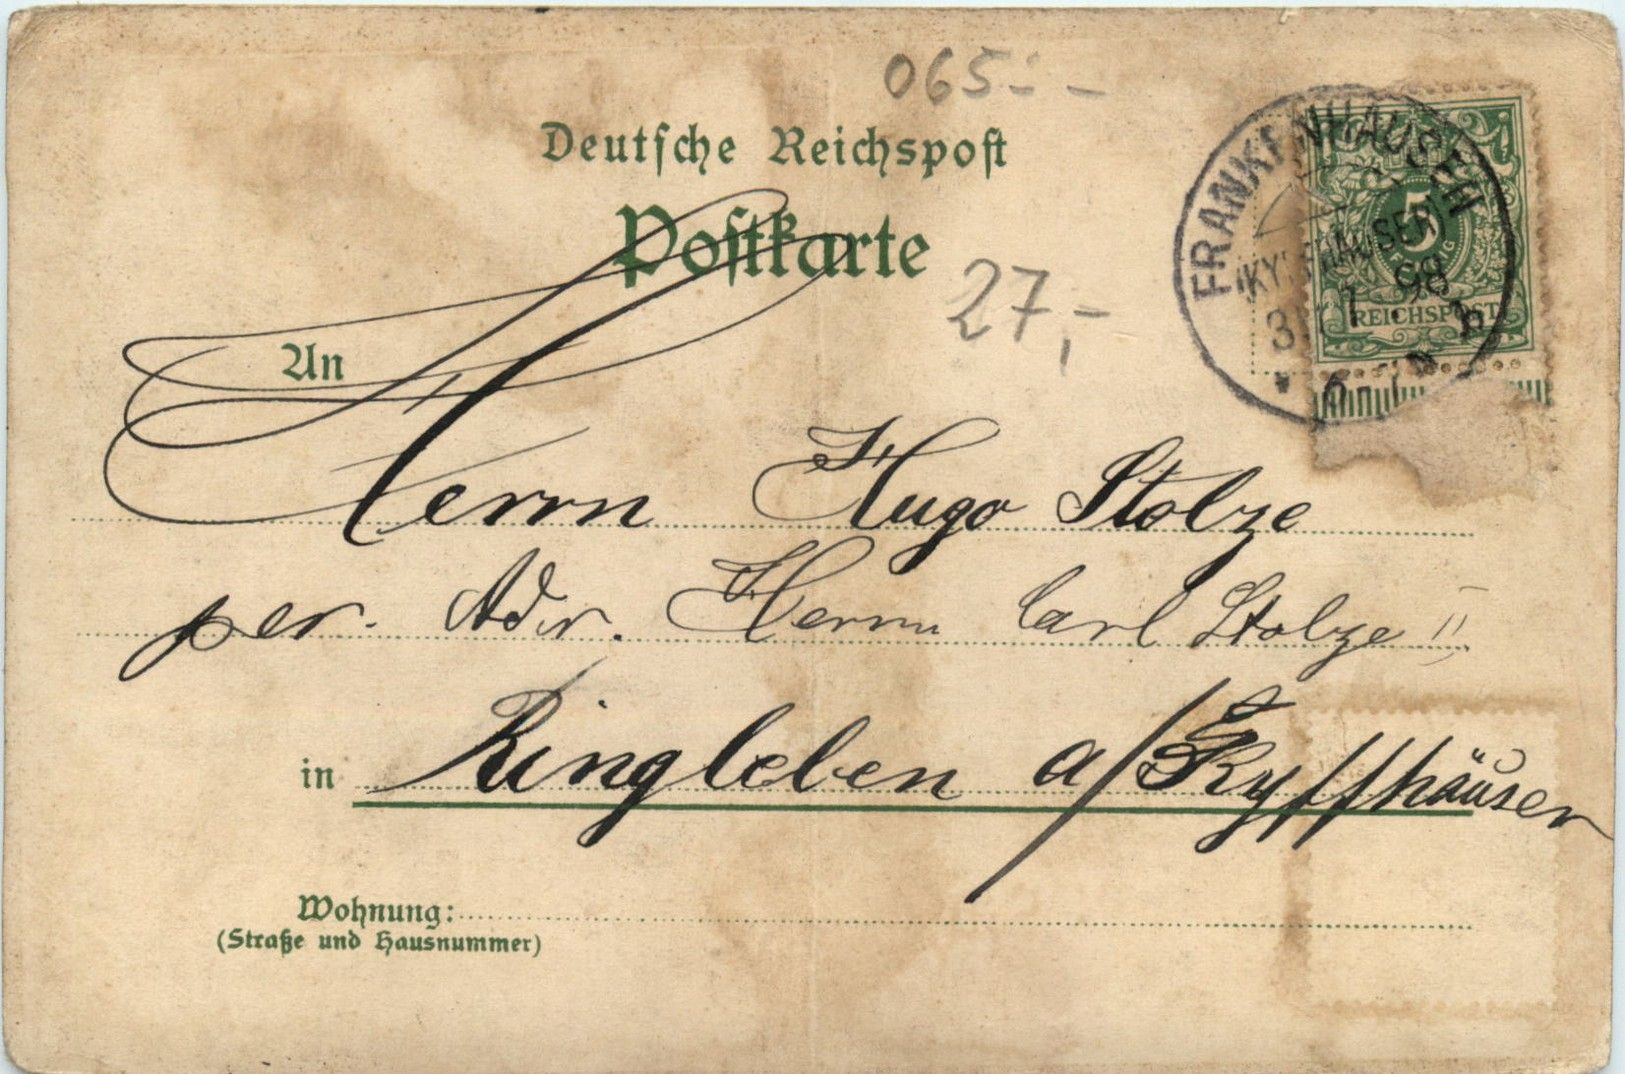 065.- -
Deutsche Reichspost
Postkarte
27,-
FRANKENHAUSEN
(KYFFHÄUSER)
98
5
PFENNIG
REICHSPOST
An
Herrn Hugo Stolze
per. Adr. Herrn Carl Stolze II
in Ringleben a/Kyffhäuser
Wohnung:
(Straße und Hausnummer)